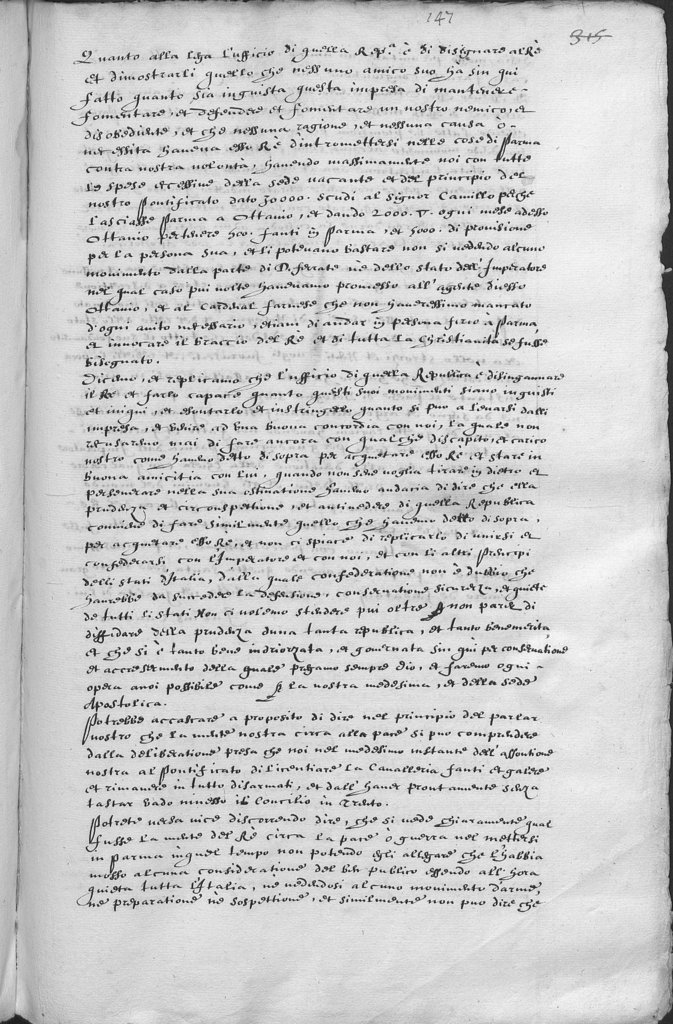 147
315
Quanto alla lega l'ufficio di quella Rep.ª è di disignare al Rè
et dimostrarli quello che nessuno amico suo hà sin qui
fatto quanto sia ingiusta questa impresa di mantenere
fomentare, et defendere et fomentare un nostro nemico, et
disobediente, et che nessuna ragione, et nessuna causa ò
necessita haveva esso Rè d'intromettersi nelle cose di Parma
contra nostra volontà, havendo massimamente noi con tutte
le spese eccessive della sede vacante et del principio del
nostro Pontificato dato 30000. scudi al signor Camillo pche
lasciasse Parma a Ottavio, et dando 2000. V. ogni mese adesso
Ottavio per tenere 400. fanti in Parma, et 5000. di provisione
per la persona sua, et li potevano bastare non si vedendo alcuno
movimento dalla parte di D. ferrate nè dello stato dell'Imperatore
nel qual caso piu volte havevamo promesso all'agente d'esso
Ottavio, et al Cardinal farnese che non haveressimo mancato
d'ogni aiuto necessario, etiam di andar in persona fino à Parma,
et invocare il braccio del Rè et di tutta la Christianita se fusse
bisognato.
Diceno, et replicamo che l'ufficio di quella Republica è disingannare
il Rè et farlo capace quanto questi suoi movimenti siano ingiusti
et iniqui, et esortarlo et instringerlo quanto si puo a levarsi dalli
impresa, et venire ad una buona concordia con noi, la quale non
recusaremo mai di fare ancora con qualche discapito, et carico
nostro come havemo detto di sopra per acquetare esso Rè et stare in
buona amicitia con lui, quando non sene voglia tirare in dietro et
perseverare nella sua ostinatione havemo audacia di dire che ella
prudenza et circonspettione, et antivedere di quella Republica
conviene di fare similmente quello che havemo detto di sopra,
per acquetare esso Rè, et non ci spiace di replicarlo di unirsi et
confederarsi con l'Imperatore et con noi, et con li altri Principi
delli stati d'Italia, dalla quale confederatione non è dubbio che
haurebbe da succedere la defensione, conservatione sicurezza, et quiete
de tutti li stati Non ci volemo stendere piu oltre p non parer di
diffidare della prudenza d'una tanta republica, et tanto benemerita,
et che si è tanto bene indrizzata, et governata sin qui per conservatione
et accrescimento della quale pregamo sempre dio, et faremo ogni
opera a noi possibile come p la nostra medesima, et della sede
Apostolica.
Potrebbe accascare a proposito di dire nel principio del parlar
nostro che la mente nostra circa alla pace si può comprendere
dalla deliberatione presa che noi nel medesimo instante dell'assontione
nostra al Pontificato di licentiare la Cavalleria fanti et galere
et rimanere in tutto disarmati, et dall'haver prontamente senza
tastar vado rimesso il Concilio in Trento.
Potrete versa vice discorrendo dire, che si vede chiaramente qual
fusse la mente del Rè circa la pace ò guerra nel mettersi
in Parma in quel tempo non potendo egli allegare che l'habbia
mosso alcuna consideratione del ben publico essendo all'hora
quieta tutta l'Italia, nè vedendosi alcuno movimento d'arme,
ne preparatione ne sospettione, et similmente non puo dire che